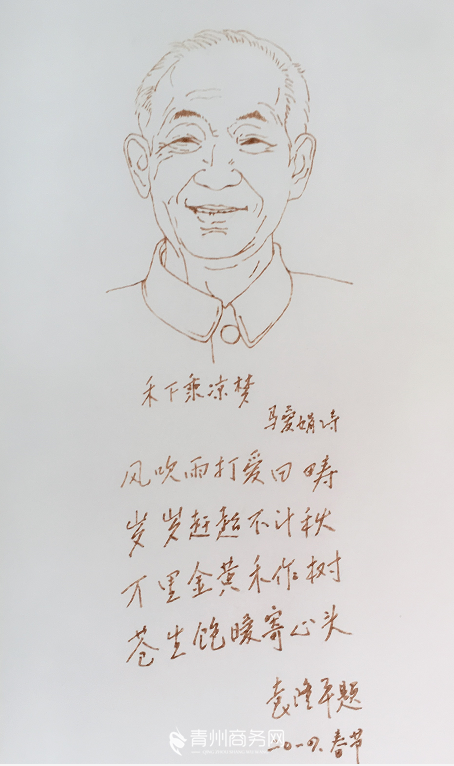 禾下乘凉梦
马爱娟诗
风吹雨打爱田畴
岁岁赶超不计秋
万里金黄禾作树
苍生饱暖寄心头
袁隆平题
二〇一九.春节
青州商务网